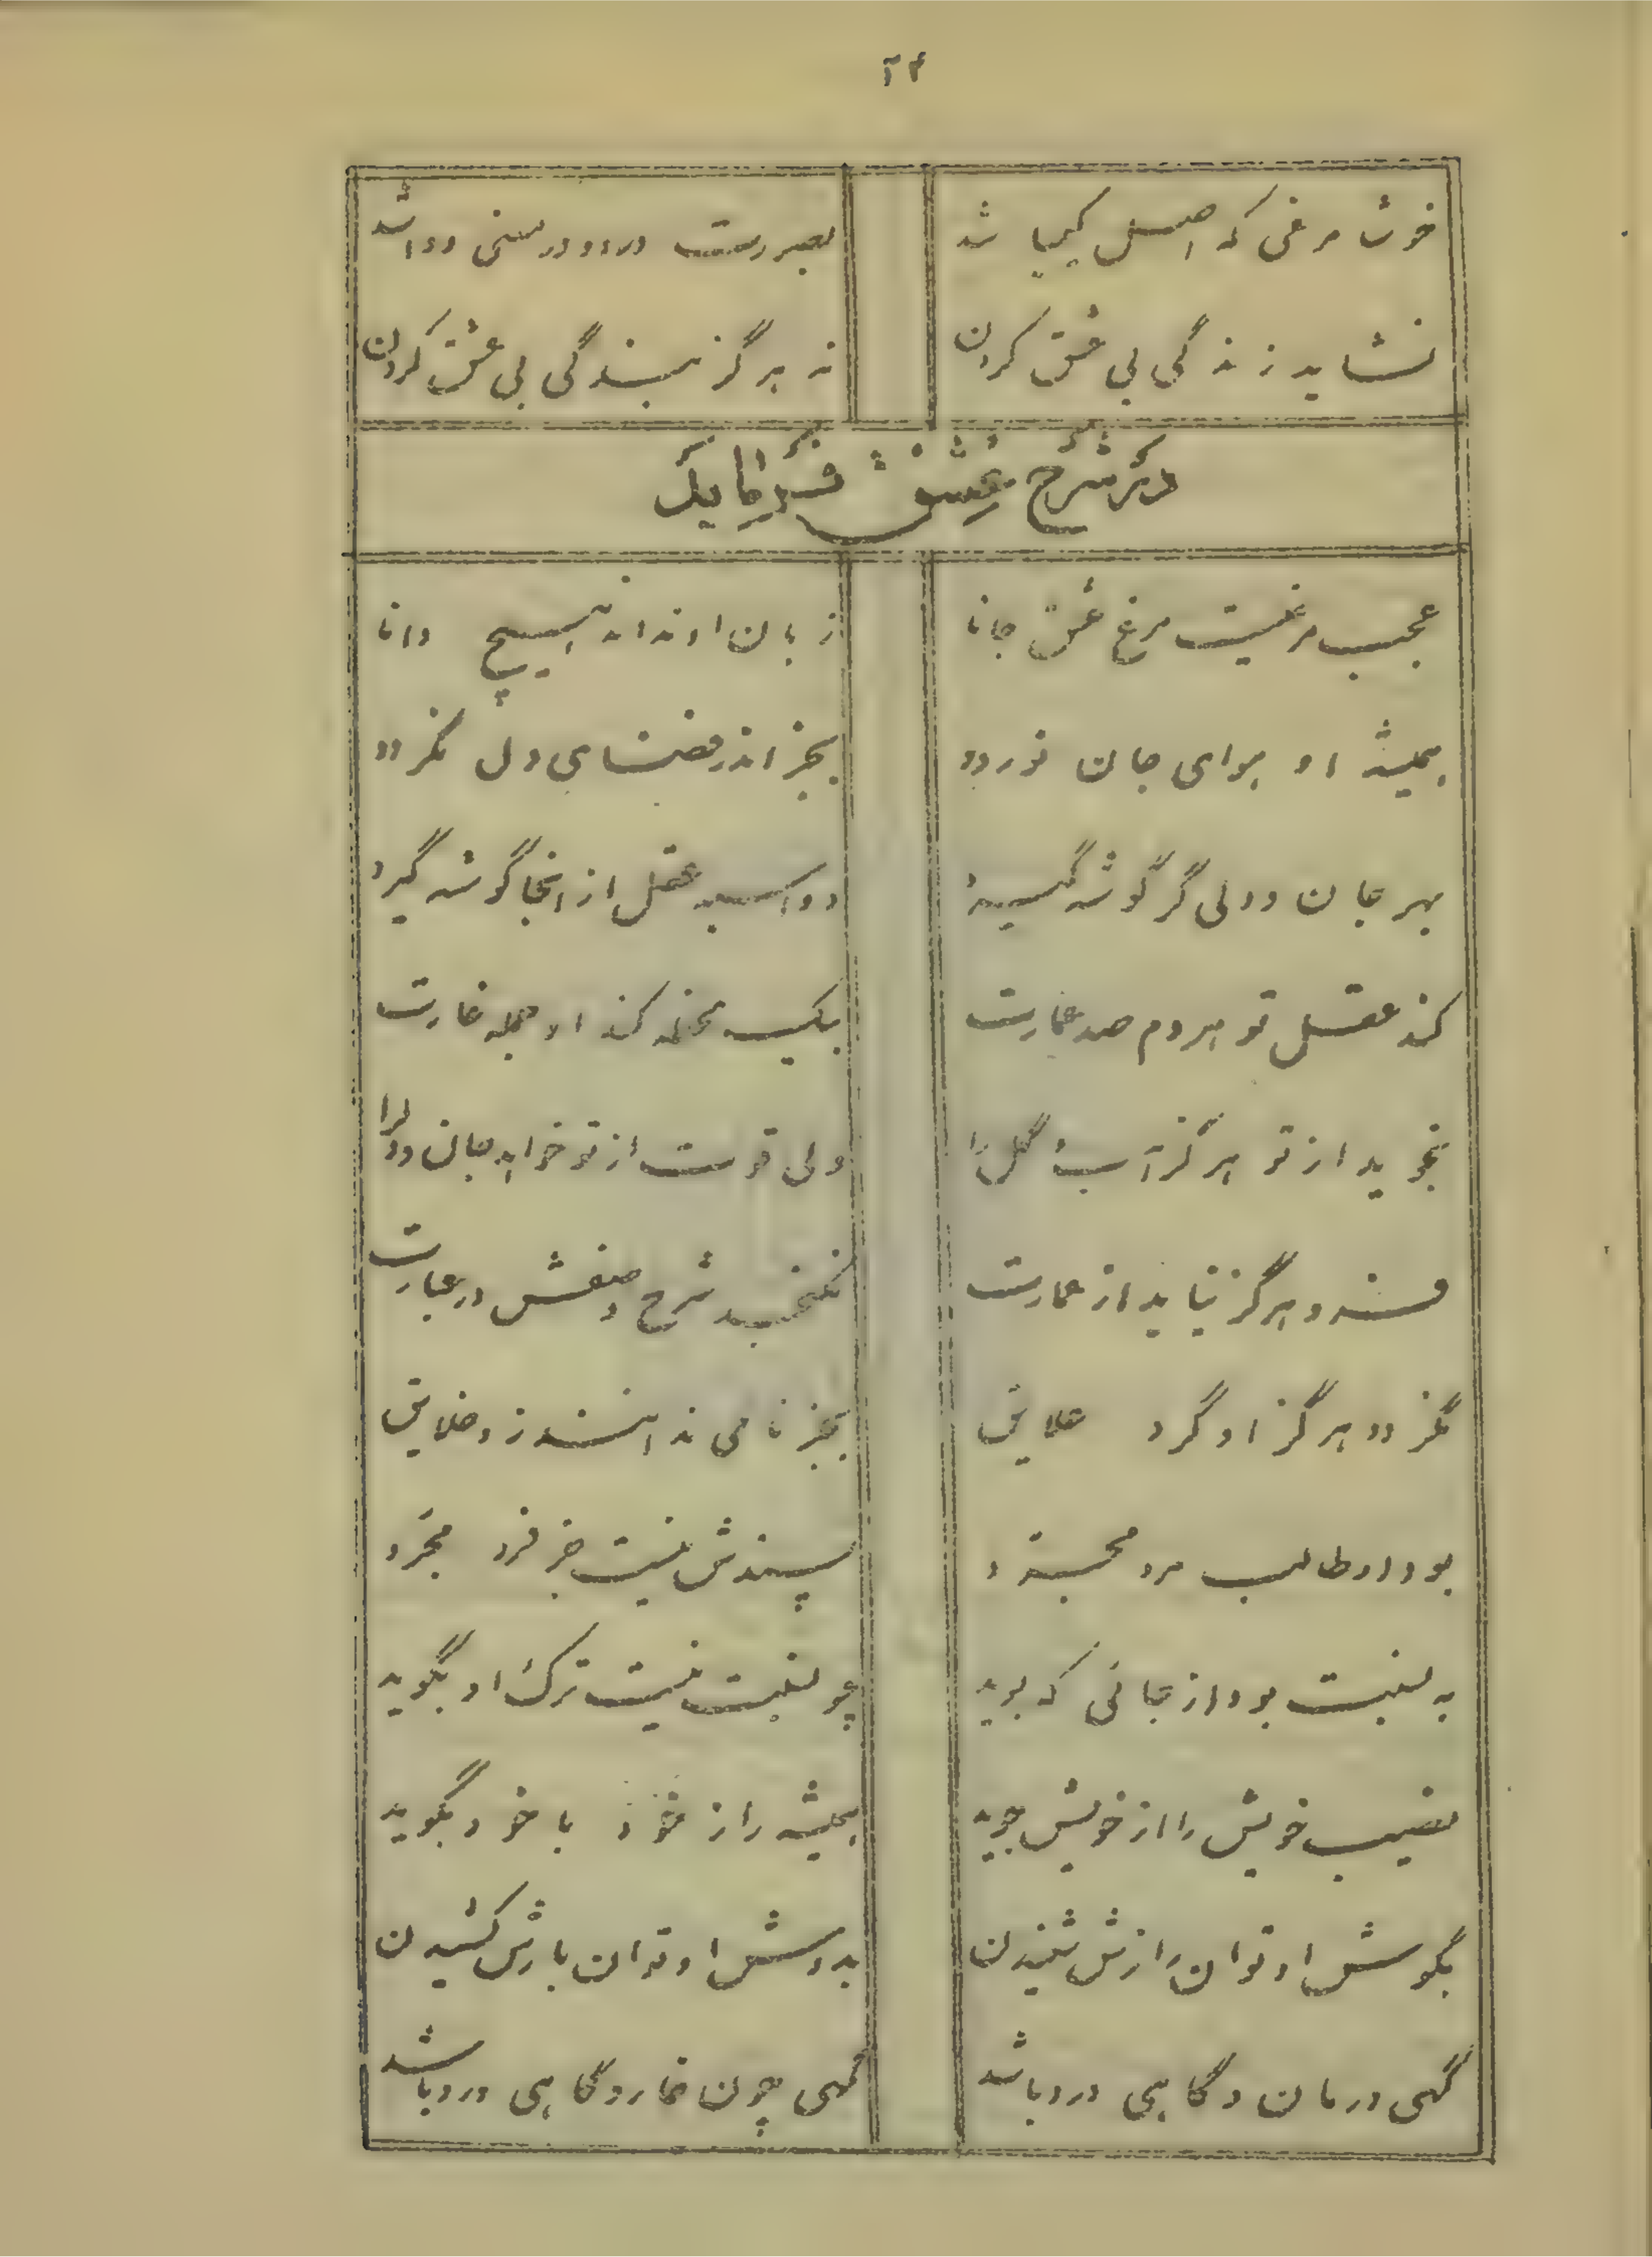 ۲۴
خوشا مرغی که اصل کیمیا شد
نشاید زندگی بی عشق کردن نه هرگز بندگی بی عشق کردن
در شرح عشق فرماید
عجب مرغیست مرغ عشق جانا زبان او نداند هیچ دانا
همیشه او هوای جان نوردد بجز اندر فضای دل نگردد
بهر جان و دلی گر گوشه گیرد دو اسبه عقل از آنجا گوشه گیرد
کند عقل تو هر دم صد عمارت بیک لحظه کند او جمله غارت
نجوید از تو هرگز آب و گل را ولی قوت از تو خواهد جان و دل را
فرو هرگز نیاید از عمارت نگنجد شرح وصفش در عبارت
نگردد هرگز او گرد علایق بجز نامی ندانند زو خلایق
بود او طالب مرد مجرد پسندش نیست جز فرد مجرد
به نسبت بود از جائی که بوید چو نسبت نیست ترک او بگوید
نصیب خویش را از خویش جوید همیشه راز خود با خود بگوید
بگوش او توان رازش شنیدن بدوش او توان بارش کشیدن
گهی درمان و گاهی درد باشد گهی چون خار و گاهی ورد باشد